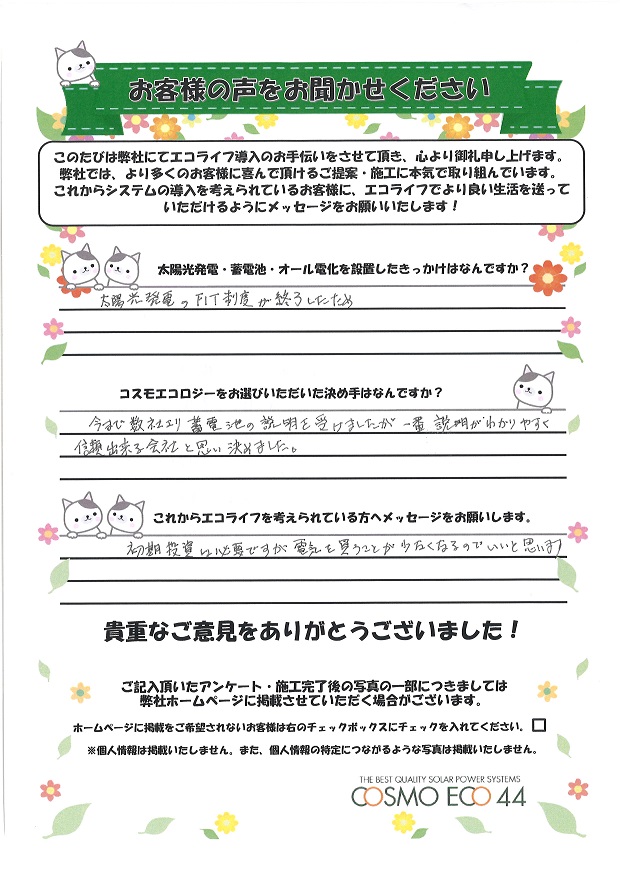 お客様の声をお聞かせください
このたびは弊社にてエコライフ導入のお手伝いをさせて頂き、心より御礼申し上げます。
弊社では、より多くのお客様に喜んで頂けるご提案・施工に本気で取り組んでいます。
これからシステムの導入を考えられているお客様に、エコライフでより良い生活を送って
いただけるようにメッセージをお願いいたします！
太陽光発電・蓄電池・オール電化を設置したきっかけはなんですか？
太陽光発電のFIT制度が終了したため
コスモエコロジーをお選びいただいた決め手はなんですか？
今まで数社より蓄電池の説明を受けましたが一番説明がわかりやすく
信頼出来る会社と思い決めました。
これからエコライフを考えられている方へメッセージをお願いします。
初期投資は必要ですが電気を買うことが少なくなるのでいいと思います
貴重なご意見をありがとうございました！
ご記入頂いたアンケート・施工完了後の写真の一部につきましては
弊社ホームページに掲載させていただく場合がございます。
ホームページに掲載をご希望されないお客様は右のチェックボックスにチェックを入れてください。
※個人情報は掲載いたしません。また、個人情報の特定につながるような写真は掲載いたしません。
THE BEST QUALITY SOLAR POWER SYSTEMS
COSMO ECO 44